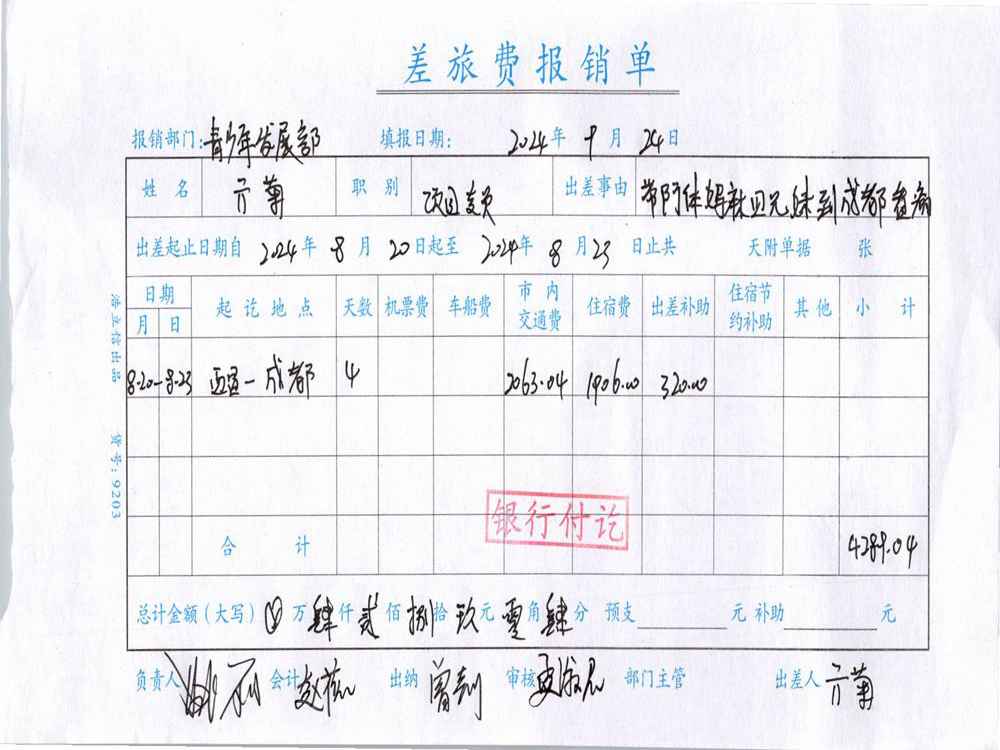 差旅费报销单
报销部门:青少年发展部 填报日期: 2024年 9月 24日
姓名 亓菊 职别 项目专员 出差事由 带阿依妈秋贝兄妹到成都看病
出差起止日期自 2024年 8月 20日起至 2024年 8月 23日止共 天附单据 张
日期 起讫地点 天数 机票费 车船费 市内交通费 住宿费 出差补助 住宿节约补助 其他 小计
月 日
8.20-8.23 —成都 4 2063.04 1906.00 320.00
银行付讫
合计 4289.04
总计金额(大写) 万 肆仟 贰佰 捌拾 玖元 零角 肆分 预支 元 补助 元
负责人 会计 出纳 审核 部门主管 出差人 亓菊
货号:9203